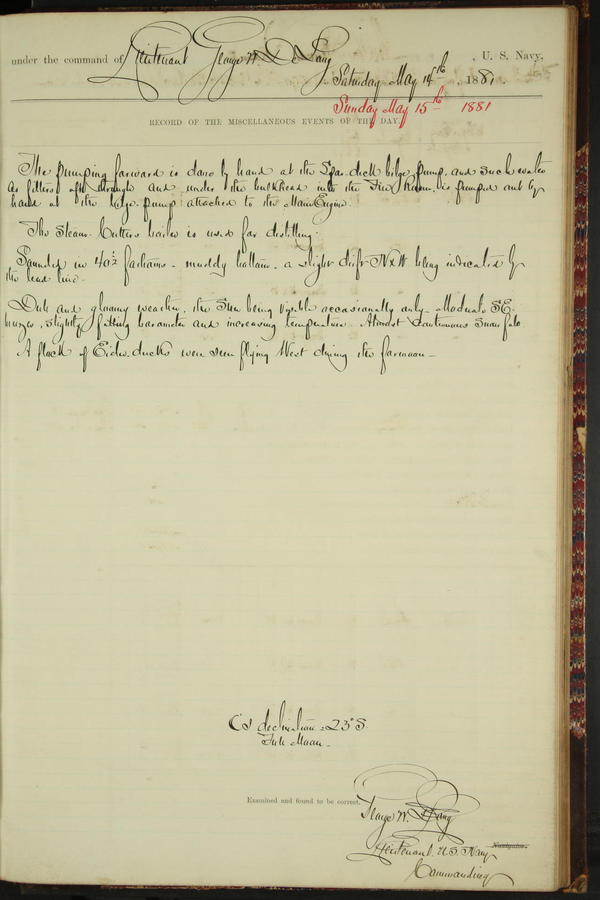 under the command of Lieutenant George W. De Long, U. S. Navy,
Saturday May 14th, 1881.
Sunday May 15th 1881
RECORD OF THE MISCELLANEOUS EVENTS OF THE DAY.
The pumping forward is done by hand at the Spar-deck bilge pump, and such water
as filters aft through and under the bulkhead into the Fire Room, is pumped out by
hand at the bilge pump attached to the Main Engine.
The Steam-Cutters boiler is used for distilling.
Sounded in 40½ fathoms - muddy bottom - a slight drift N x W being indicated by
the lead line.
Dull and gloomy weather, the Sun being visible occasionally only - Moderate SE
breezes, slightly falling barometer and increasing temperature. Almost Continuous Snow fall
A flock of Eider ducks were seen flying West during the forenoon -
declination = 23° S.
Full Moon -
Examined and found to be correct.
George W. De Long
Lieutenant, U.S. Navy
Navigator.
Commanding